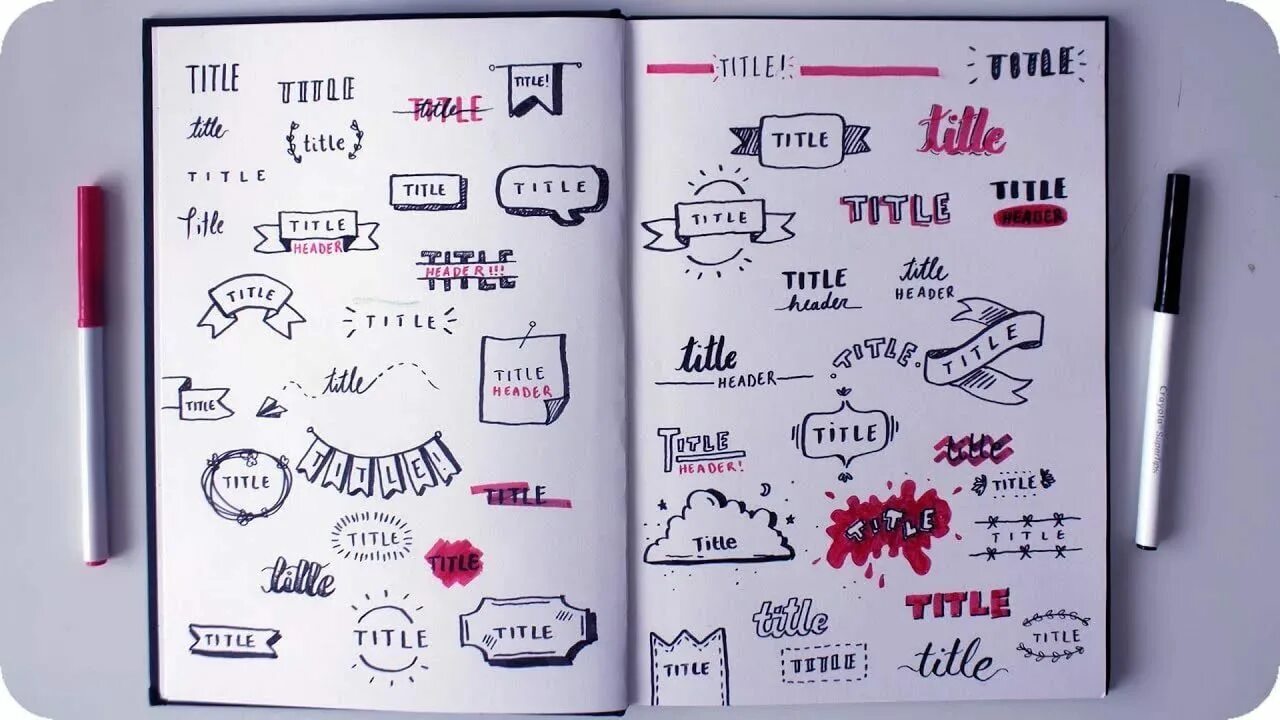 TITLE
TITLE
TITLE
title
TITLE!
title
title
TITLE
TITLE
TITLE
Title
TITLE
HEADER
TITLE
HEADER!!!
TITLE
TITLE
title
TITLE
HEADER
TITLE
TITLE!
TITLE
TITLE
TITLE
TITLE
title
TITLE
TITLE
TITLE
TITLE!
TITLE
TITLE
title
TITLE
TITLE
TITLE
HEADER
TITLE
header
title
HEADER
TITLE
title
HEADER
TITLE
TITLE
TITLE
HEADER!
title
TITLE
Title
TITLE
TITLE
title
TITLE
TITLE
TITLE
TITLE
title
Crayola SuperTips